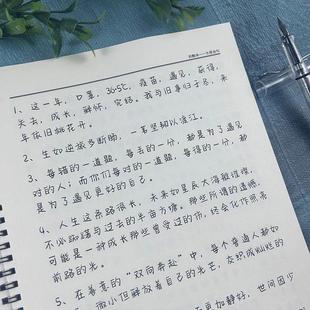 1、这一年，口罩，36.5℃，疫苗，遇见，获得，
失去，成长，解忧，完结。我与旧事归于尽，来
年依旧桃花开。
2、生如逆旅多断肠，一苇坚韧以渡江。
3、每错的一道题，每丢的一分，都是为了遇见
对的人；而你们每对的一道题，每得的一分，都
是为了遇见更好的自己。
4、人生这条路很长，未来如星辰大海般璀璨，
不必踟蹰于过去的半亩方塘。那些所谓的遗憾，
可能是一种成长那些曾受过的伤，终会化作照亮
前路的光。
5、在善意的“双向奔赴”中，每个普通人都如
微小但释放着自己的光芒，交织成灿烂的
更加静好，世间因少